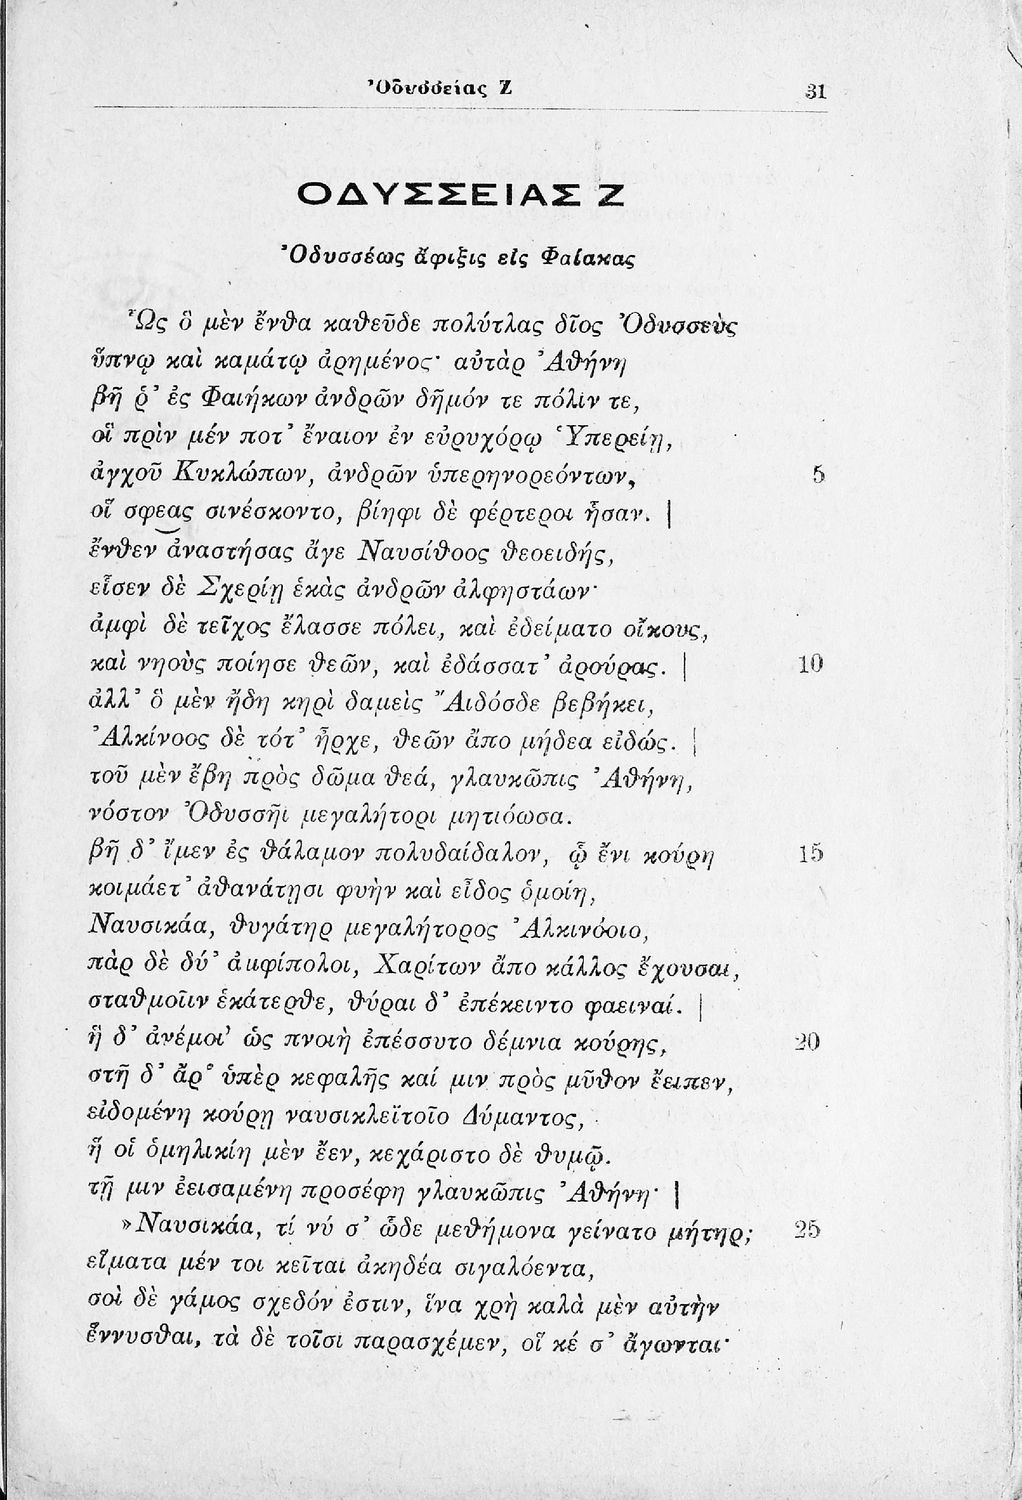 Ὀδυσσείας Ζ 31
ΟΔΥΣΣΕΙΑΣ Ζ
Ὀδυσσέως ἄφιξις εἰς Φαίακας
Ὣς ὃ μὲν ἔνθα καθεῦδε πολύτλας δῖος Ὀδυσσεὺς
ὕπνῳ καὶ καμάτῳ ἀρημένος· αὐτὰρ Ἀθήνη
βῆ ῥ’ ἐς Φαιήκων ἀνδρῶν δῆμόν τε πόλιν τε,
οἳ πρὶν μέν ποτ’ ἔναιον ἐν εὐρυχόρῳ Ὑπερείῃ,
ἀγχοῦ Κυκλώπων, ἀνδρῶν ὑπερηνορεόντων, 5
οἵ σφεας σινέσκοντο, βίηφι δὲ φέρτεροι ἦσαν. |
ἔνθεν ἀναστήσας ἄγε Ναυσίθοος θεοειδής,
εἷσεν δὲ Σχερίῃ ἑκὰς ἀνδρῶν ἀλφηστάων·
ἀμφὶ δὲ τεῖχος ἔλασσε πόλει, καὶ ἐδείματο οἴκους,
καὶ νηοὺς ποίησε θεῶν, καὶ ἐδάσσατ’ ἀρούρας. | 10
ἀλλ’ ὃ μὲν ἤδη κηρὶ δαμεὶς Ἄιδόσδε βεβήκει,
Ἀλκίνοος δὲ τότ’ ἦρχε, θεῶν ἄπο μήδεα εἰδώς. |
τοῦ μὲν ἔβη πρὸς δῶμα θεά, γλαυκῶπις Ἀθήνη,
νόστον Ὀδυσσῆι μεγαλήτορι μητιόωσα.
βῆ δ’ ἴμεν ἐς θάλαμον πολυδαίδαλον, ᾧ ἔνι κούρη 15
κοιμάετ’ ἀθανάτῃσι φυὴν καὶ εἶδος ὁμοίη,
Ναυσικάα, θυγάτηρ μεγαλήτορος Ἀλκινόοιο,
πὰρ δὲ δύ’ ἀμφίπολοι, Χαρίτων ἄπο κάλλος ἔχουσαι,
σταθμοῖιν ἑκάτερθε, θύραι δ’ ἐπέκειντο φαειναί. |
ἣ δ’ ἀνέμοι’ ὡς πνοιὴ ἐπέσσυτο δέμνια κούρης, 20
στῆ δ’ ἄρ’ ὑπὲρ κεφαλῆς καί μιν πρὸς μῦθον ἔειπεν,
εἰδομένη κούρῃ ναυσικλειτοῖο Δύμαντος,
ἥ οἱ ὁμηλικίη μὲν ἔεν, κεχάριστο δὲ θυμῷ.
τῇ μιν ἐεισαμένη προσέφη γλαυκῶπις Ἀθήνη· |
»Ναυσικάα, τί νύ σ’ ὧδε μεθήμονα γείνατο μήτηρ; 25
εἵματα μέν τοι κεῖται ἀκηδέα σιγαλόεντα,
σοὶ δὲ γάμος σχεδόν ἐστιν, ἵνα χρὴ καλὰ μὲν αὐτὴν
ἕννυσθαι, τὰ δὲ τοῖσι παρασχέμεν, οἵ κέ σ’ ἄγωνται·